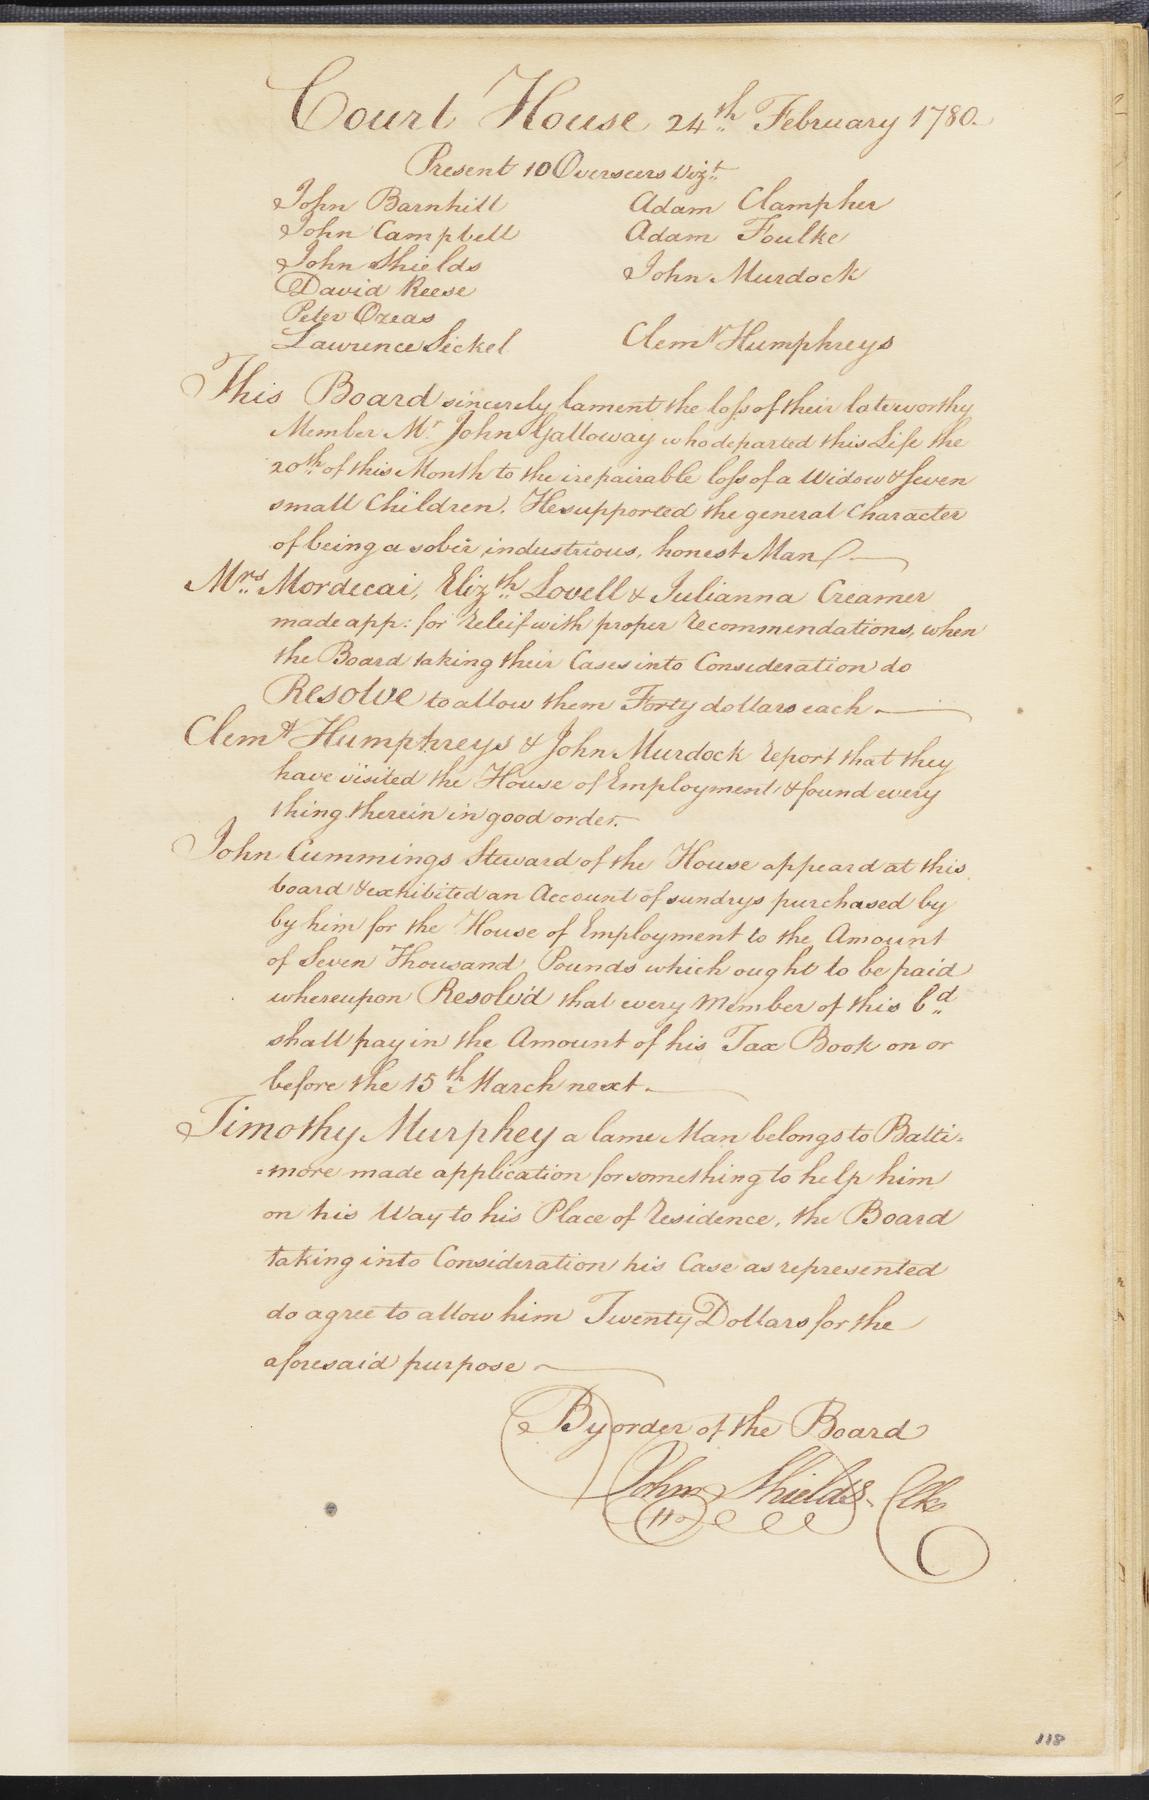 Court House 24th February 1780.
Present 10 Overseers Vizt.
John Barnhill Adam Clampher
John Campbell Adam Foulke
John Shields John Murdock
David Reese
Peter Ozeas
Lawrence Sickel Clemt Humphreys
This Board sincerely lament the loss of their late worthy
Member Mr. John Galloway who departed this Life the
20th of this Month to the irepairable loss of a Widow & Seven
small Children. He supported the general Character
of being a sober industrious, honest Man
Mrs. Mordecai, Elizth. Lovell & Julianna Creamer
made app: for releif with proper recommendations, when
the Board taking their Cases into Consideration do
Resolve to allow them Forty dollars each.
Clemt Humphreys & John Murdock report that they
have visited the House of Employment & found every
thing therein in good order.
John Cummings Steward of the House appeard at this
board & exhibited an Account of sundrys purchased by
by him for the House of Employment to the Amount
of Seven Thousand Pounds which ought to be paid
whereupon Resolv'd that every Member of this bd.
shall pay in the Amount of his Tax Book on or
before the 15th March next.
Timothy Murphey a lame Man belongs to Balti=
=more made application for something to help him
on his Way to his Place of residence, the Board
taking into Consideration his Case as represented
do agree to allow him Twenty Dollars for the
aforesaid purpose
By order of the Board
John Shields Clk
118